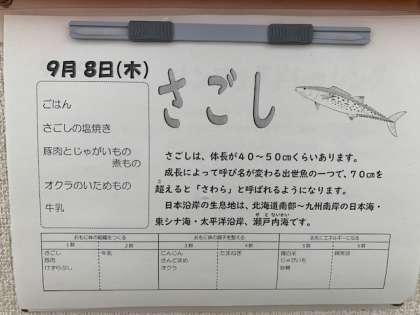 9月8日(木)
ごはん
さごしの塩焼き
豚肉とじゃがいもの
煮もの
オクラのいためもの
牛乳
さごし
さごしは、体長が40~50㎝くらいあります。
成長によって呼び名が変わる出世魚の一つで、70㎝を
超えると「さわら」と呼ばれるようになります。
日本沿岸の生息地は、北海道南部~九州南岸の日本海・
東シナ海・太平洋沿岸、瀬戸内海です。
せとないかい
おもに体の組織をつくる
おもに体の調子を整える
おもにエネルギーになる
1群 2群 3群 4群 5群 6群
さごし 牛乳 にんじん たまねぎ 精白米
豚肉 さんどまめ じゃがいも
けずりぶし オクラ 砂糖